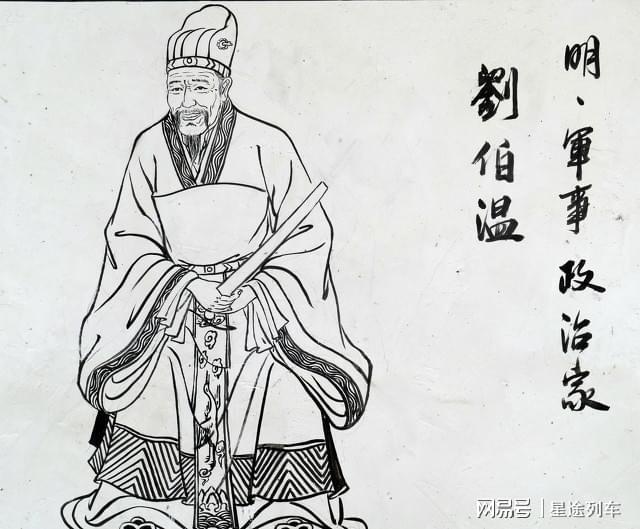 明、軍事政治家
劉伯温
网易号|星途列车